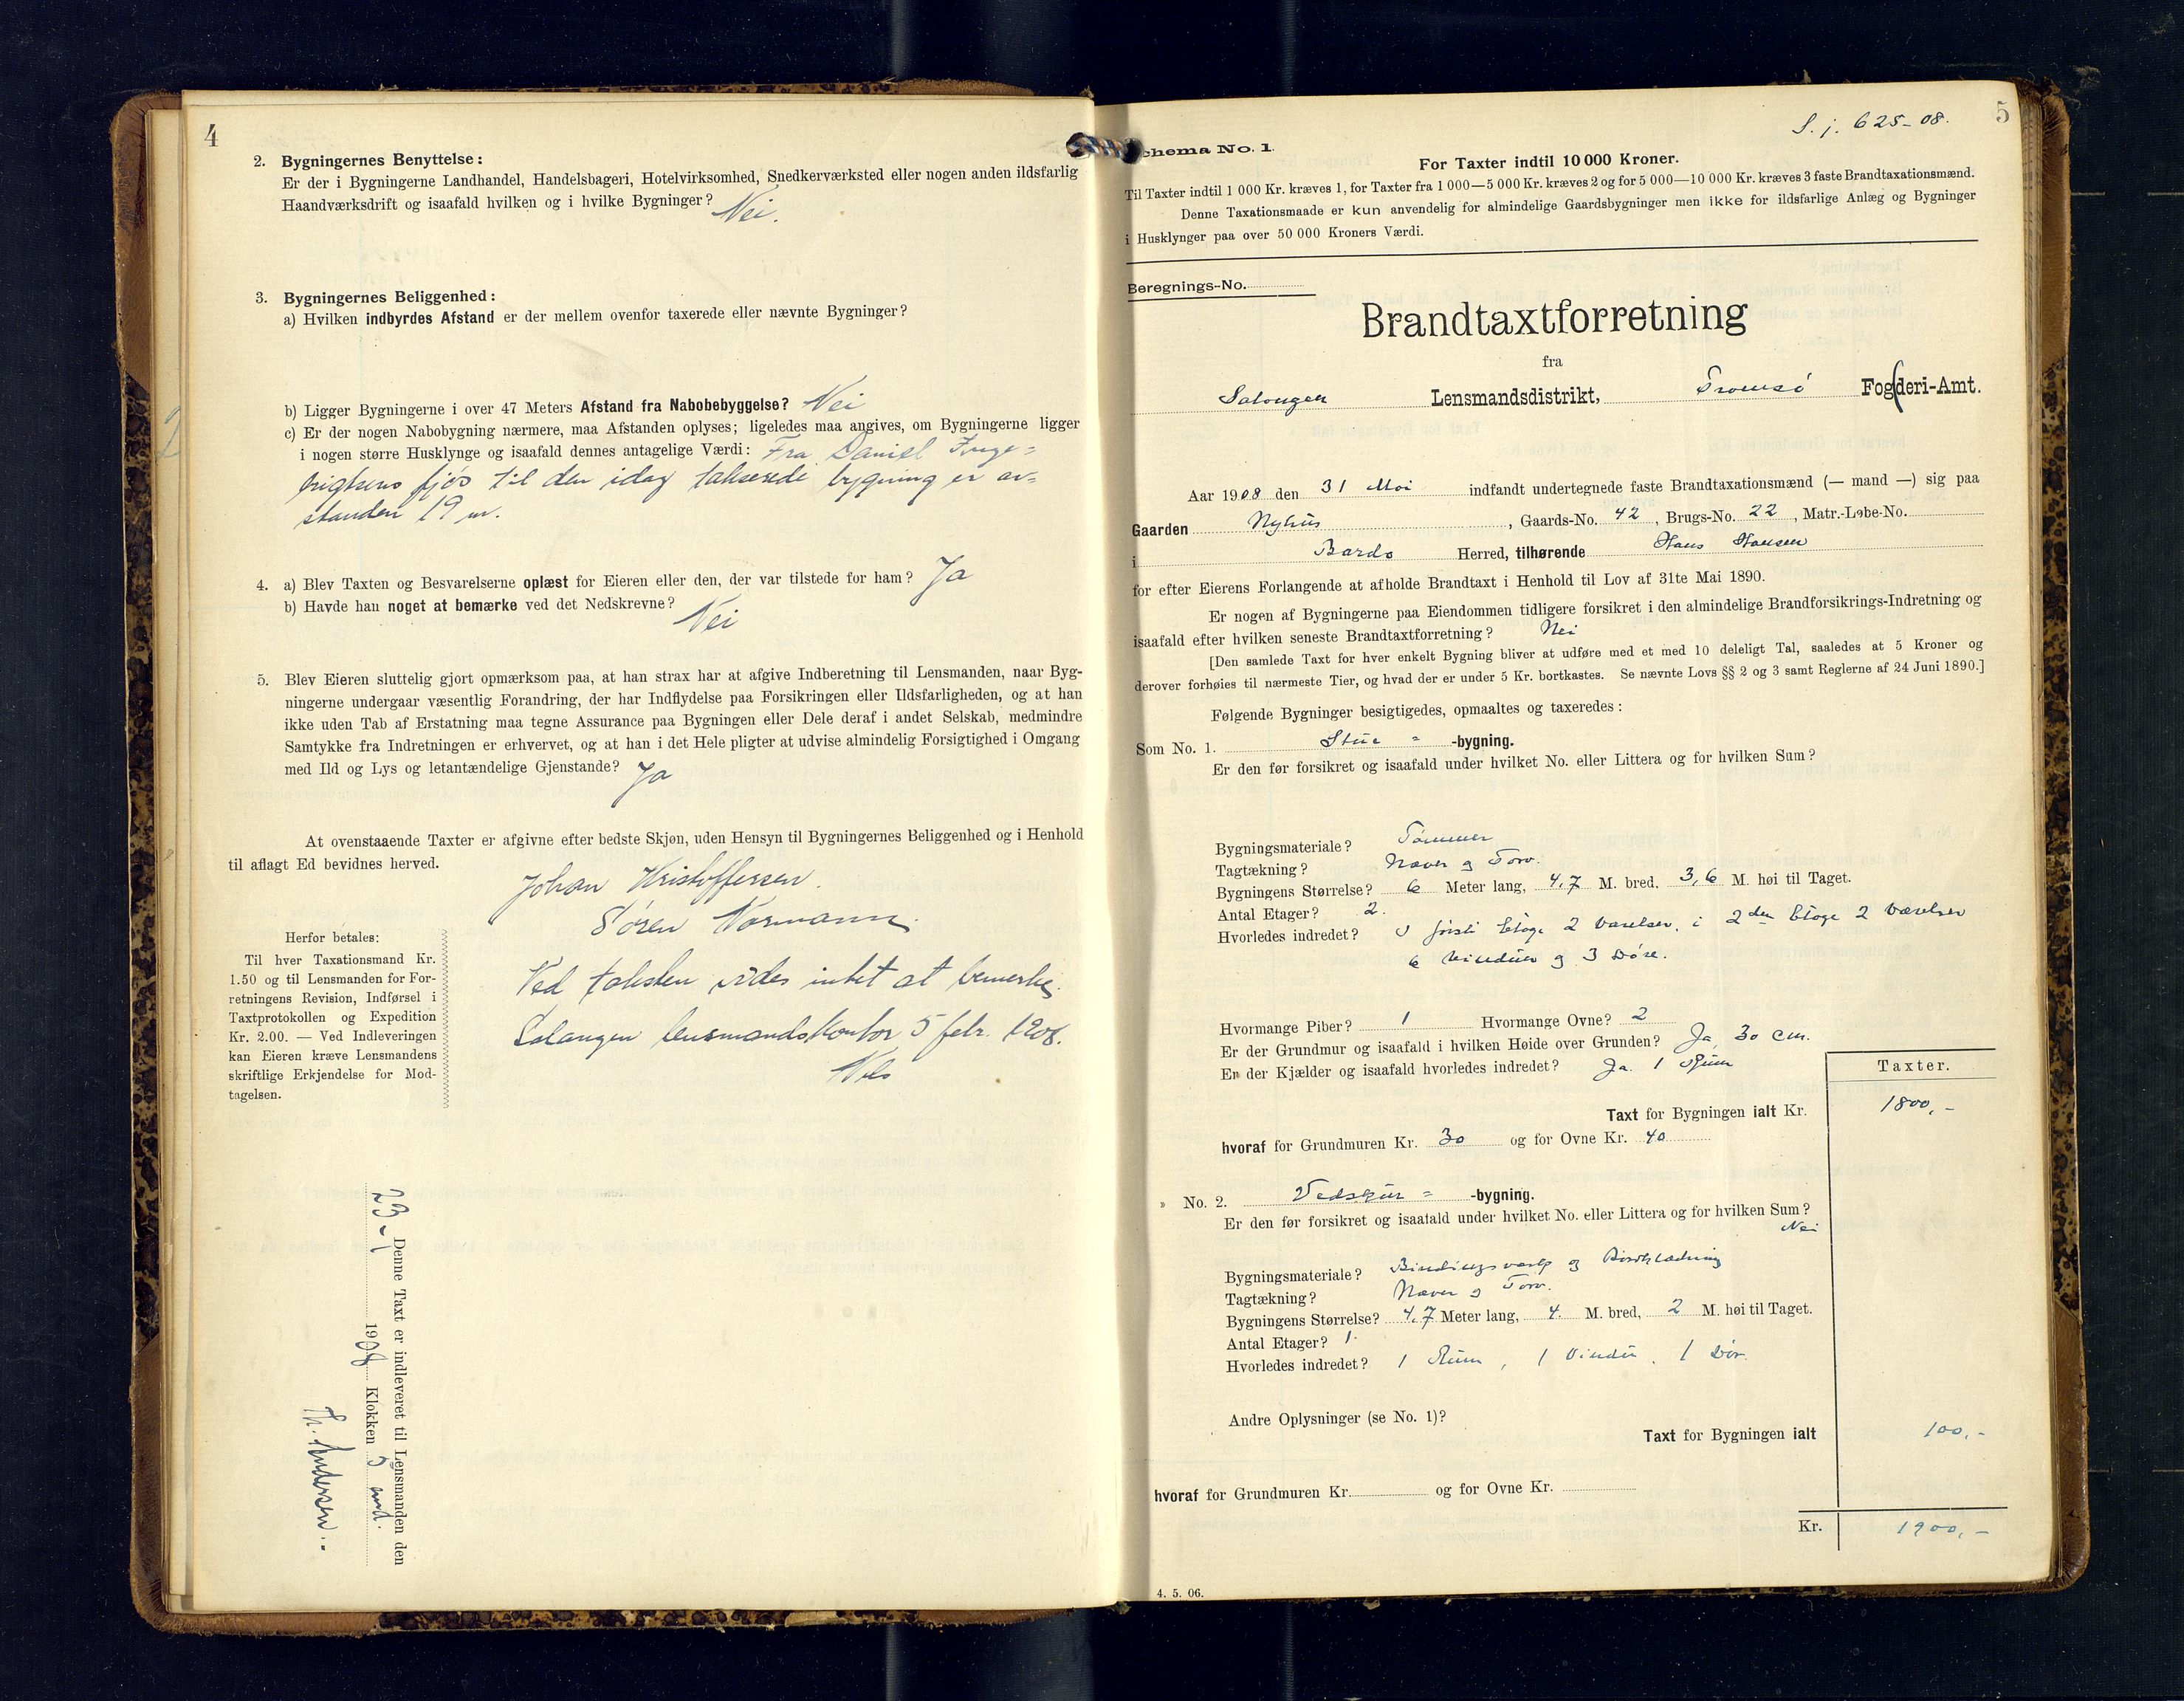 4
2. Bygningernes Benyttelse:
Er der i Bygningerne Landhandel, Handelsbageri, Hotelvirksomhed, Snedkerværksted eller nogen anden ildsfarlig
Haandværksdrift og isaafald hvilken og i hvilke Bygninger? Nei.
3. Bygningernes Beliggenhed:
a) Hvilken indbyrdes Afstand er der mellem ovenfor taxerede eller nævnte Bygninger?
b) Ligger Bygningerne i over 47 Meters Afstand fra Nabobebyggelse? Nei
c) Er der nogen Nabobygning nærmere, maa Afstanden oplyses; ligeledes maa angives, om Bygningerne ligger
i nogen større Husklynge og isaafald dennes antagelige Værdi: Fra Daniel Inge=
brigtsens fjøs til den idag takserede bygning er av=
standen 19 m.
4. a) Blev Taxten og Besvarelserne oplæst for Eieren eller den, der var tilstede for ham? Ja
b) Havde han noget at bemærke ved det Nedskrevne? Nei
5. Blev Eieren sluttelig gjort opmærksom paa, at han strax har at afgive Indberetning til Lensmanden, naar Byg-
ningerne undergaar væsentlig Forandring, der har Indflydelse paa Forsikringen eller Ildsfarligheden, og at han
ikke uden Tab af Erstatning maa tegne Assurance paa Bygningen eller Dele deraf i andet Selskab, medmindre
Samtykke fra Indretningen er erhvervet, og at han i det Hele pligter at udvise almindelig Forsigtighed i Omgang
med Ild og Lys og letantændelige Gjenstande? Ja
At ovenstaaende Taxter er afgivne efter bedste Skjøn, uden Hensyn til Bygningernes Beliggenhed og i Henhold
til aflagt Ed bevidnes herved.
Johan Kristoffersen.
Søren Normann.
Ved taksten vides intet at bemerke.
Salangen lensmandskontor 5 febr. 1908.
Herfor betales:
Til hver Taxationsmand Kr.
1.50 og til Lensmanden for For-
retningens Revision, Indførsel i
Taxtprotokollen og Expedition
Kr. 2.00. — Ved Indleveringen
kan Eieren kræve Lensmandens
skriftlige Erkjendelse for Mod-
tagelsen.
Denne Taxt er indleveret til Lensmanden den
23-1 1908 Klokken 5 emd.
Th. Andersen.
S. j. 625-08.
5
Schema No. 1.
For Taxter indtil 10 000 Kroner.
Til Taxter indtil 1 000 Kr. kræves 1, for Taxter fra 1 000—5 000 Kr. kræves 2 og for 5 000—10 000 Kr. kræves 3 faste Brandtaxationsmænd.
Denne Taxationsmaade er kun anvendelig for almindelige Gaardsbygninger men ikke for ildsfarlige Anlæg og Bygninger
i Husklynger paa over 50 000 Kroners Værdi.
Beregnings-No.
Brandtaxtforretning
fra
Salangen Lensmandsdistrikt, Tromsø Fogderi-Amt.
Aar 1908 den 31 Mai indfandt undertegnede faste Brandtaxationsmænd (— mand —) sig paa
Gaarden Nyhus, Gaards-No. 42, Brugs-No. 22, Matr.-Løbe-No.
i Bardo Herred, tilhørende Hans Hansen
for efter Eierens Forlangende at afholde Brandtaxt i Henhold til Lov af 31te Mai 1890.
Er nogen af Bygningerne paa Eiendommen tidligere forsikret i den almindelige Brandforsikrings-Indretning og
isaafald efter hvilken seneste Brandtaxtforretning? Nei
[Den samlede Taxt for hver enkelt Bygning bliver at udføre med et med 10 deleligt Tal, saaledes at 5 Kroner og
derover forhøies til nærmeste Tier, og hvad der er under 5 Kr. bortkastes. Se nævnte Lovs §§ 2 og 3 samt Reglerne af 24 Juni 1890.]
Følgende Bygninger besigtigedes, opmaaltes og taxeredes:
Som No. 1. Stue = -bygning.
Er den før forsikret og isaafald under hvilket No. eller Littera og for hvilken Sum?
Bygningsmateriale? Tømmer
Tagtækning? Næver og Torv.
Bygningens Størrelse? 6 Meter lang, 4,7 M. bred, 3,6 M. høi til Taget.
Antal Etager? 2.
Hvorledes indredet? I første Etage 2 Værelser, i 2den Etage 2 Værelser
6 Vinduer og 3 Døre.
Hvormange Piber? 1 Hvormange Ovne? 2
Er der Grundmur og isaafald i hvilken Høide over Grunden? Ja, 30 cm.
Er der Kjælder og isaafald hvorledes indredet? Ja. 1 Rum
Taxter.
Taxt for Bygningen ialt Kr. 1800,-
hvoraf for Grundmuren Kr. 30 og for Ovne Kr. 40
» No. 2. Vedskur = -bygning.
Er den før forsikret og isaafald under hvilket No. eller Littera og for hvilken Sum?
Nei
Bygningsmateriale? Bindingsverk og Bordklædning
Tagtækning? Næver og Torv.
Bygningens Størrelse? 4,7 Meter lang, 4. M. bred, 2 M. høi til Taget.
Antal Etager? 1.
Hvorledes indredet? 1 Rum, 1 Vindu, 1 Dør.
Andre Oplysninger (se No. 1)?
Taxt for Bygningen ialt 100,-
hvoraf for Grundmuren Kr. og for Ovne Kr.
Kr. 1900,-
4. 5. 06.